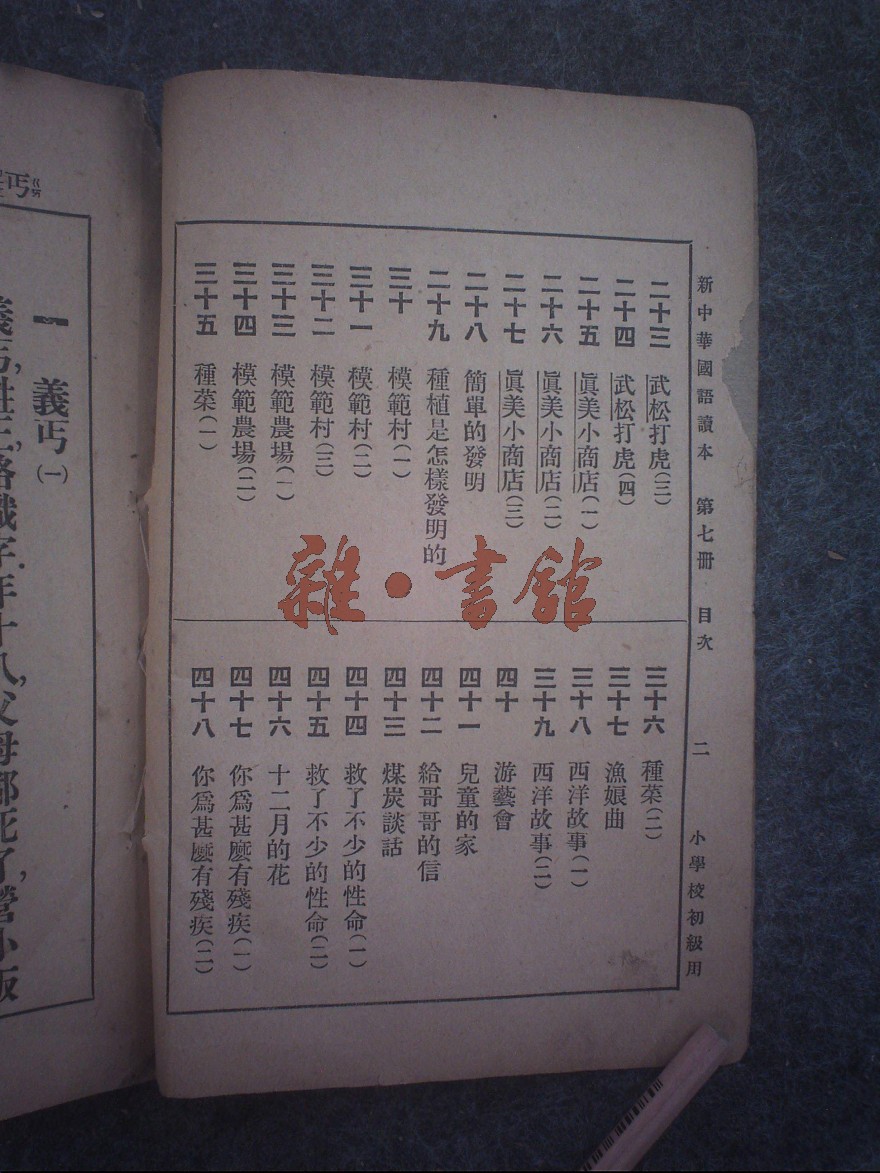 新中華國語讀本　第七冊　目次　二　小學校初級用
二十三　武松打虎(三)
二十四　武松打虎(四)
二十五　眞美小商店(一)
二十六　眞美小商店(二)
二十七　眞美小商店(三)
二十八　簡單的發明
二十九　種植是怎樣發明的
三十　模範村(一)
三十一　模範村(二)
三十二　模範村(三)
三十三　模範農場(一)
三十四　模範農場(二)
三十五　種菜(一)
三十六　種菜(二)
三十七　漁娘曲
三十八　西洋故事(一)
三十九　西洋故事(二)
四十　游藝會
四十一　兒童的家
四十二　給哥哥的信
四十三　煤炭談話
四十四　救了不少的性命(一)
四十五　救了不少的性命(二)
四十六　十二月的花
四十七　你爲甚麼有殘疾(一)
四十八　你爲甚麼有殘疾(二)
雜·書館
丐ㄍㄞ
一　義丐(一)
義丐,姓王,略識字.年十八,父母都死了,營小販